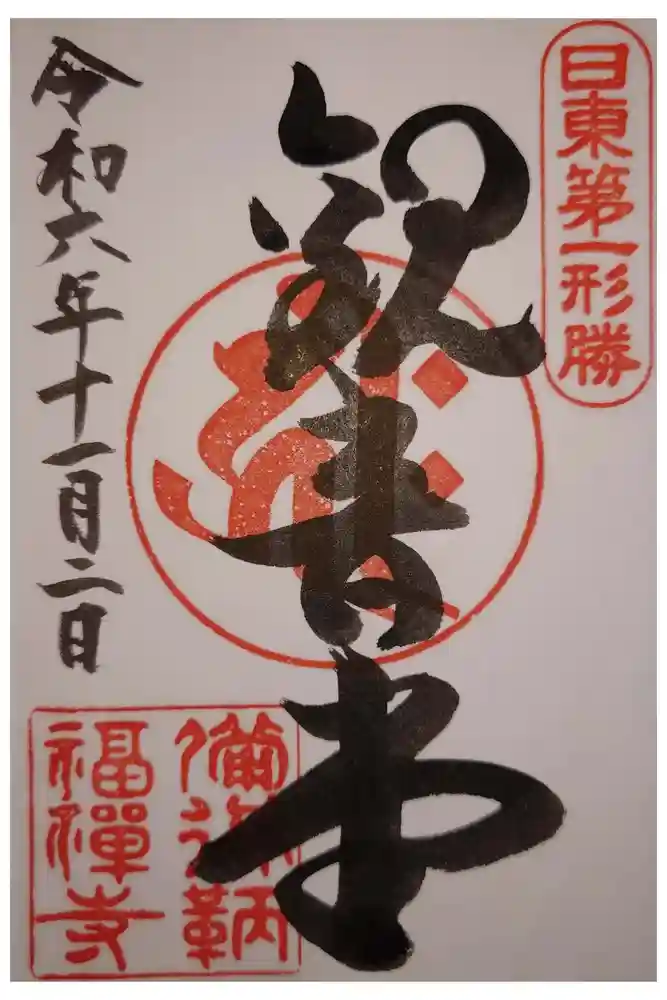 日東第一形勝
観音堂
令和六年十一月二日
備後鞆
福禪寺